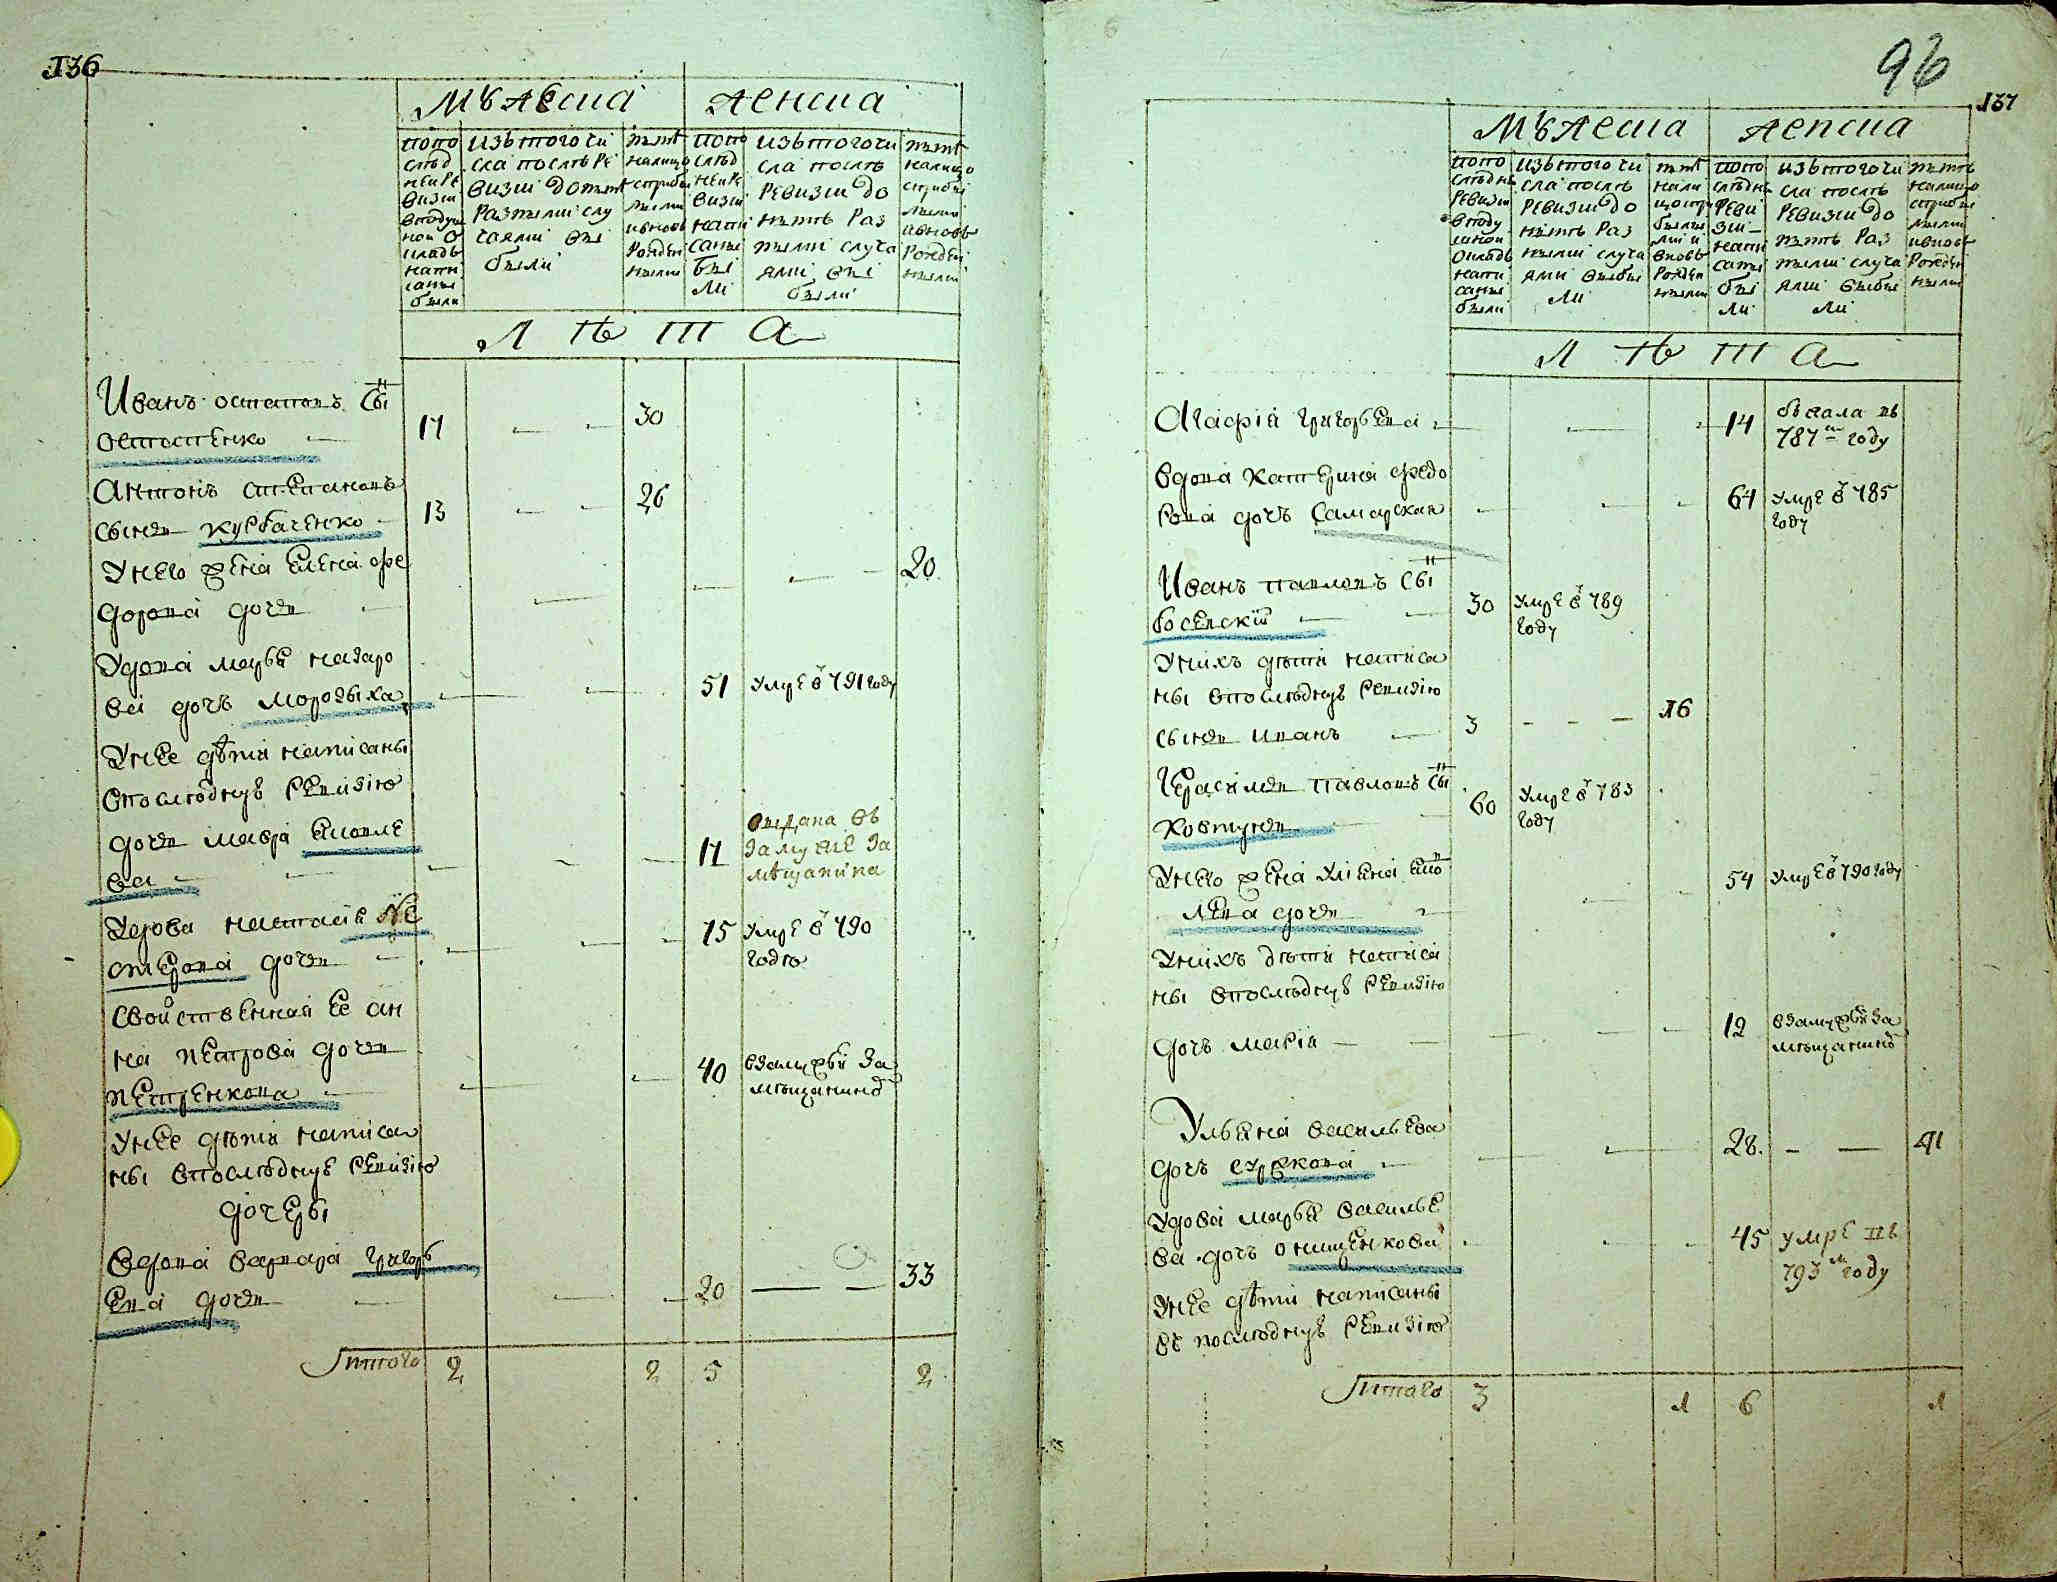 136
мужеска
женска
по по
следней ре
визии
в подуш
ной о
кладъ
напи
саны
были
изъ того чи
сла послѣ ре
визии до нынѣ
разными слу
чаями вы
были
нынѣ
налицо
с прибы
лыми
и вновь
рожден
ными
по по
след
ней ре
визии
напи
саны
бы
ли
изъ того чи
сла послѣ
ревизии до
нынѣ раз
ными случа
ями вы
были
нынѣ
налицо
с прибы
лыми
и вновь
рожден
ными
лѣта
Иванъ остаповъ сынъ
остапенко
17
30
Антонъ степановъ
сынъ курбаченко
13
26
У него жена елена фе
дорова дочь
20
Удова марья назаро
ва дочь морозыха
51
умре в 791 году
У нее дѣти написаны
в последнуе ревизию
дочь мавра яковле
ва
17
выдана въ
замужье за
мѣщанина
Удова настасия не
стерова дочь
75
умре в 790
годю
свойственная ее ан
на петрова дочь
петренкова
40
взамужьи за
мещанином
У нее дѣти написа
ны в последнуе ревизию
дочеры
вдова варвара григорь
ева дочь
20
33
Итого
2
2
5
2
96
137
мужеска
женска
по по
следней
ревизии
в поду
шной
окладъ
напи
саны
были
изъ того чи
сла послѣ
ревизии до
нынѣ раз
ными случа
ями выбы
ли
нынѣ
нали
цо с при
былы
ми и
вновь
рожден
ными
по по
следней
реви
зии
напи
саны
бы
ли
изъ того чи
сла послѣ
ревизии до
нынѣ раз
ными случа
ями выбы
ли
нынѣ
налицо
с прибы
лыми
и вновь
рожден
ными
лѣта
Агафия григорьева
14
бежала въ
787 м году
вдова катерина федо
рова дочь самарская
64
умре в 785
году
Иванъ павловъ сынъ
босенский
30
умре в 789
году
У нихъ дѣти написа
ны в последнуе ревизию
сынъ иванъ
3
16
Герасимъ павловъ сынъ
ковтунъ
60
умре в 783
году
У него жена улiяна яко
влева дочь
54
умре в 790 году
У нихъ дѣти написа
ны в последнуе ревизию
дочь мария
12
взамужьи за
мещанином
Ульяна васильева
дочь суркова
28
41
удова марья василье
ва дочь онищенкова
45
умре въ
793 м году
У нее дѣти написаны
въ последнуе ревизию
Итого
3
1
6
1